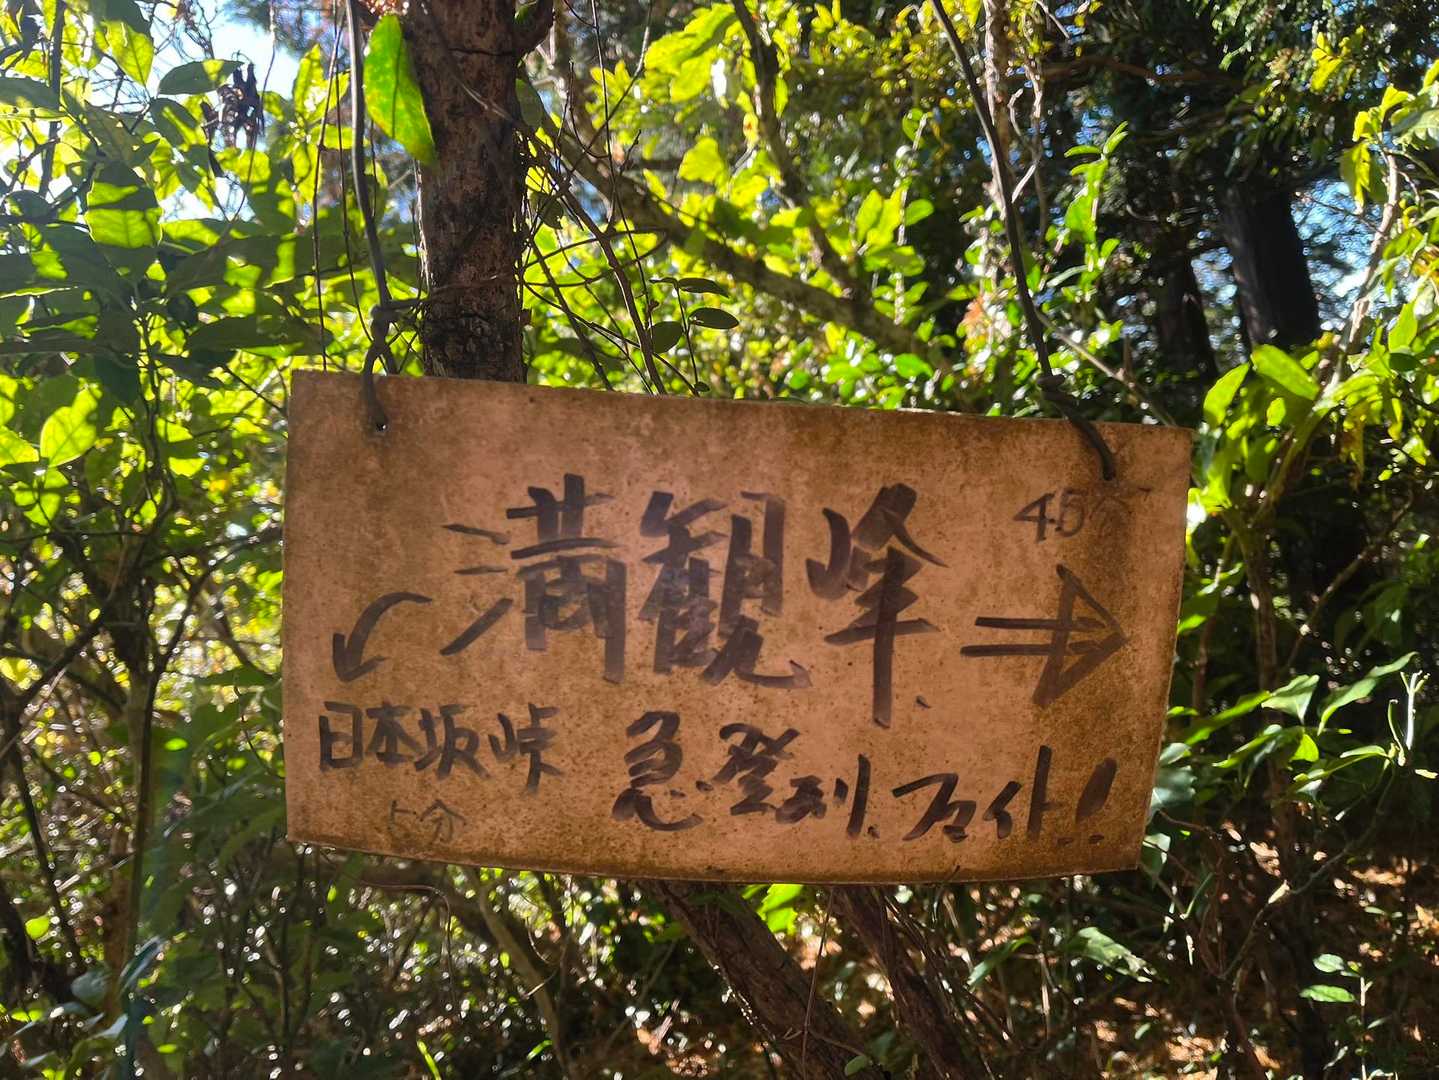 満観峰
45分
日本坂峠
5分
急登別.ファイ!!